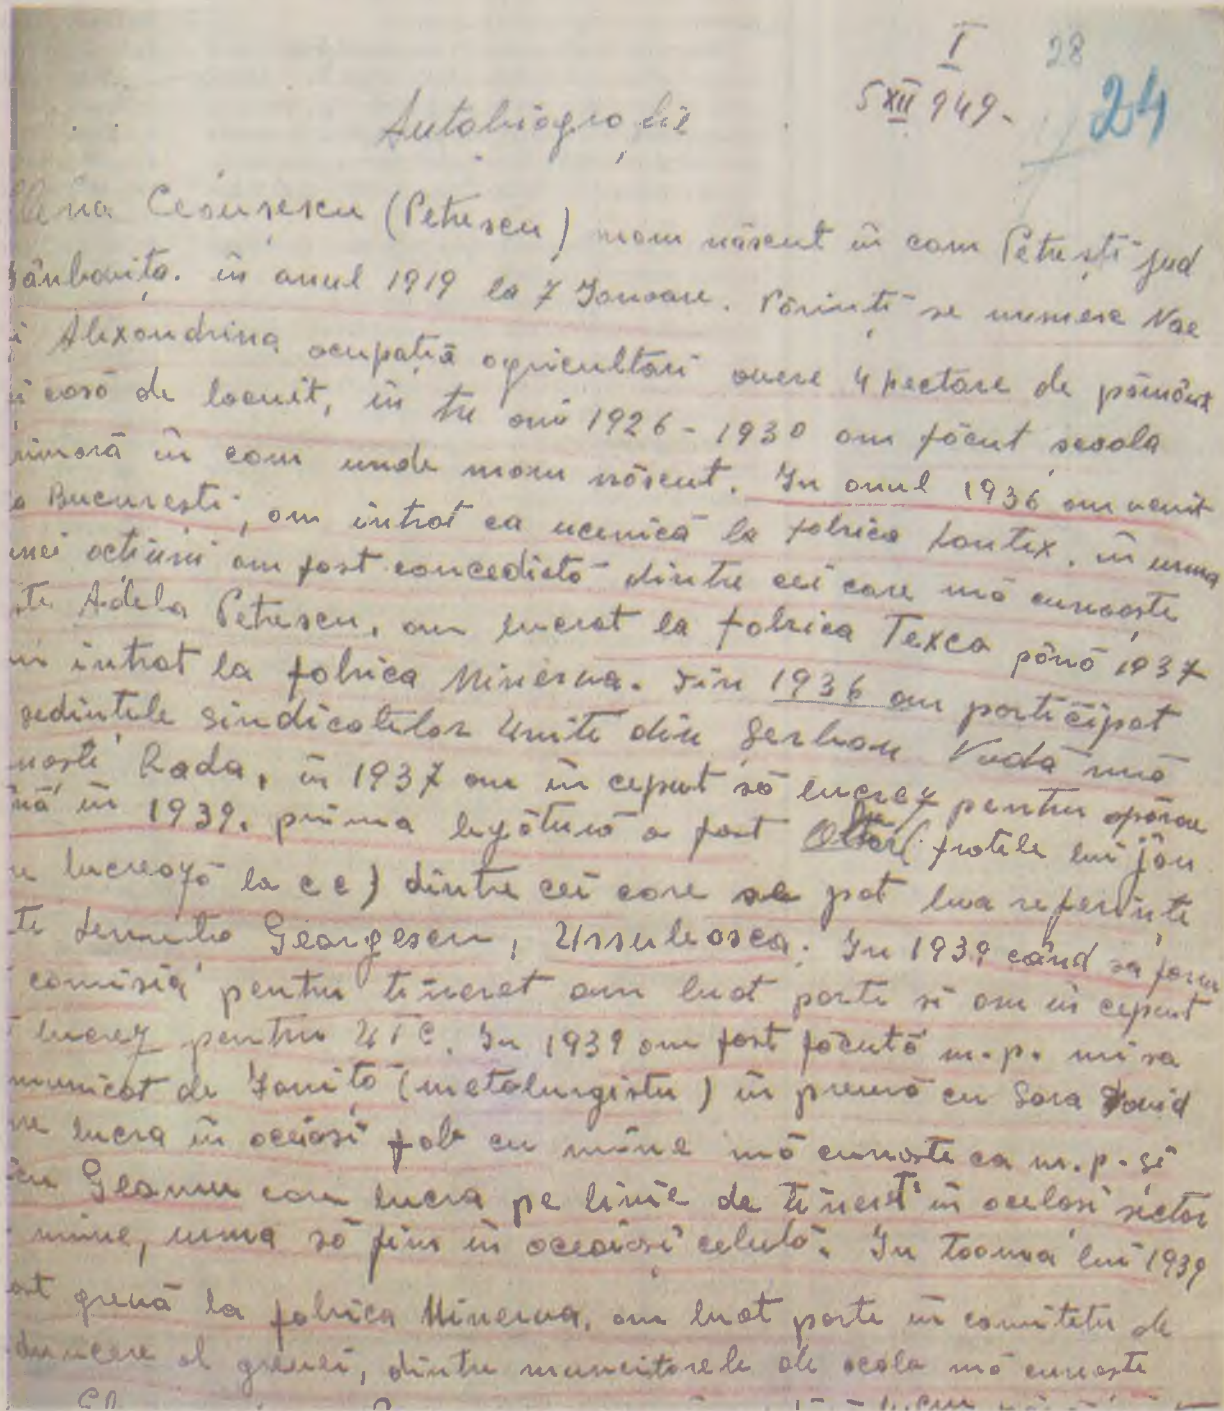 I
28
5 XII 949.
24
Autobiografie
Elena Ceaușescu (Petrescu) mam născut în com Petrești jud
în anul 1919 la 7 Ianoare. Părinți se numesc Nae
Alexandrina ocupația agricultori avere 4 hectare de pămînt
casă de locuit, în tre ani 1926-1930 am făcut scoala
în com unde mam născut. In anul 1936 am venit
București, am intrat ca ucenică la fabrica Lontex, în urma
acțiuni am fost concediată dintre cei care mă cunoaște
Adela Petrescu, am lucrat la fabrica Texca pănă 1937
intrat la fabrica Minerva. Din 1936 am participat
sedințele sindicatelor Unite din Serban Vodă mă
Rada, în 1937 am în ceput să lucrez pentru apărare
în 1939, prima legătură a fost (fratele lui Jan
lucrează la c c) dintre cei care se pot lua referințe
Georgescu, Ursuleasca. In 1939 când sa form
comisia pentru tineret am luat parte si am în ceput
lucrez pentru UTC. In 1939 am fost făcută m.p. mi sa
de Ioniță (metalurgistu) în preună cu Sara David
lucra în aceiasi fab cu mine mă cunoste ca m.p. și
Geamu care lucra pe linie de tineret în acelasi sector
mine, urma să fim în aceeiasi celulă. In toamna lui 1939
grevă la fabrica Minerva, am luat parte în comitetu de
al grevei, dintre muncitorele de acolo mă cunoaște